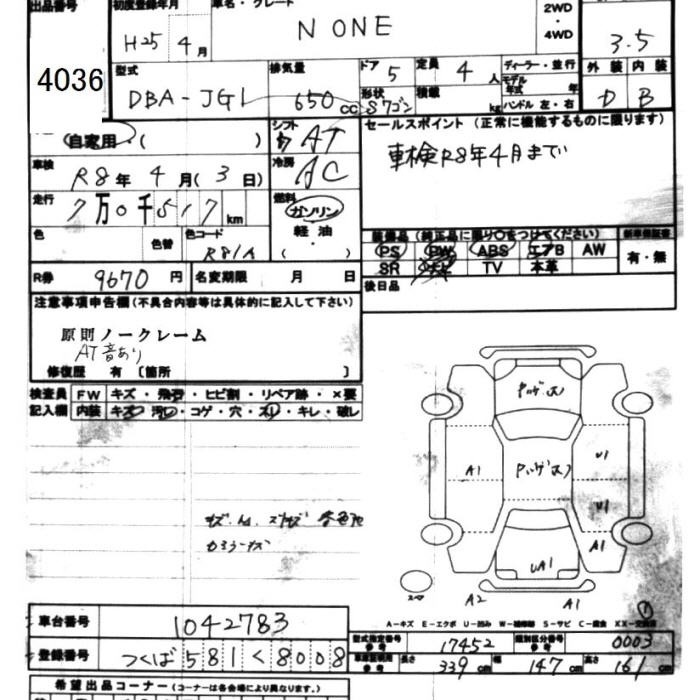 出品番号
4036
初度登録年月
H25年4月
車名・グレード
N ONE
2WD
・
4WD
3.5
型式
DBA-JG1
排気量
650cc
ドア 5
形状
定員 4人
積載 kg
ディーラー・並行
モデル年式 年
ハンドル 左・右
外装 内装
D B
自家用・( )
シフト AT
冷房 AC
セールスポイント (正常に機能するものに限ります)
車検R8年4月まで
車検
R8年4月(3日)
走行
7万0千517km
燃料
ガソリン
軽油
( ・ )
色
色替
色コード
R81A
R券 9670円
名変期限 月 日
新車保証書
有・無
PS PW ABS エアB AW
SR ナビ TV 本革
後日品
注意事項申告欄(不具合内容等は具体的に記入して下さい)
原則ノークレーム
AT音あり
修復歴 有 〔箇所 〕
検査員
記入欄
FW キズ・飛石・ヒビ割・リペア跡・×要
内装 キズ・汚れ・コゲ・穴・スレ・キレ・破レ
A1
U1
U1
A1
UA1
A2
A1
スペア
A-キズ E-エクボ U-凹み W-補修跡 S-サビ C-腐食
車台番号 1042783
登録番号 つくば581く8008
型式指定番号 参考 17452
類別区分番号 参考 0003
長さ 339cm 幅 147cm 高さ 161cm
希望出品コーナー(コーナーは各会場により異なります。)